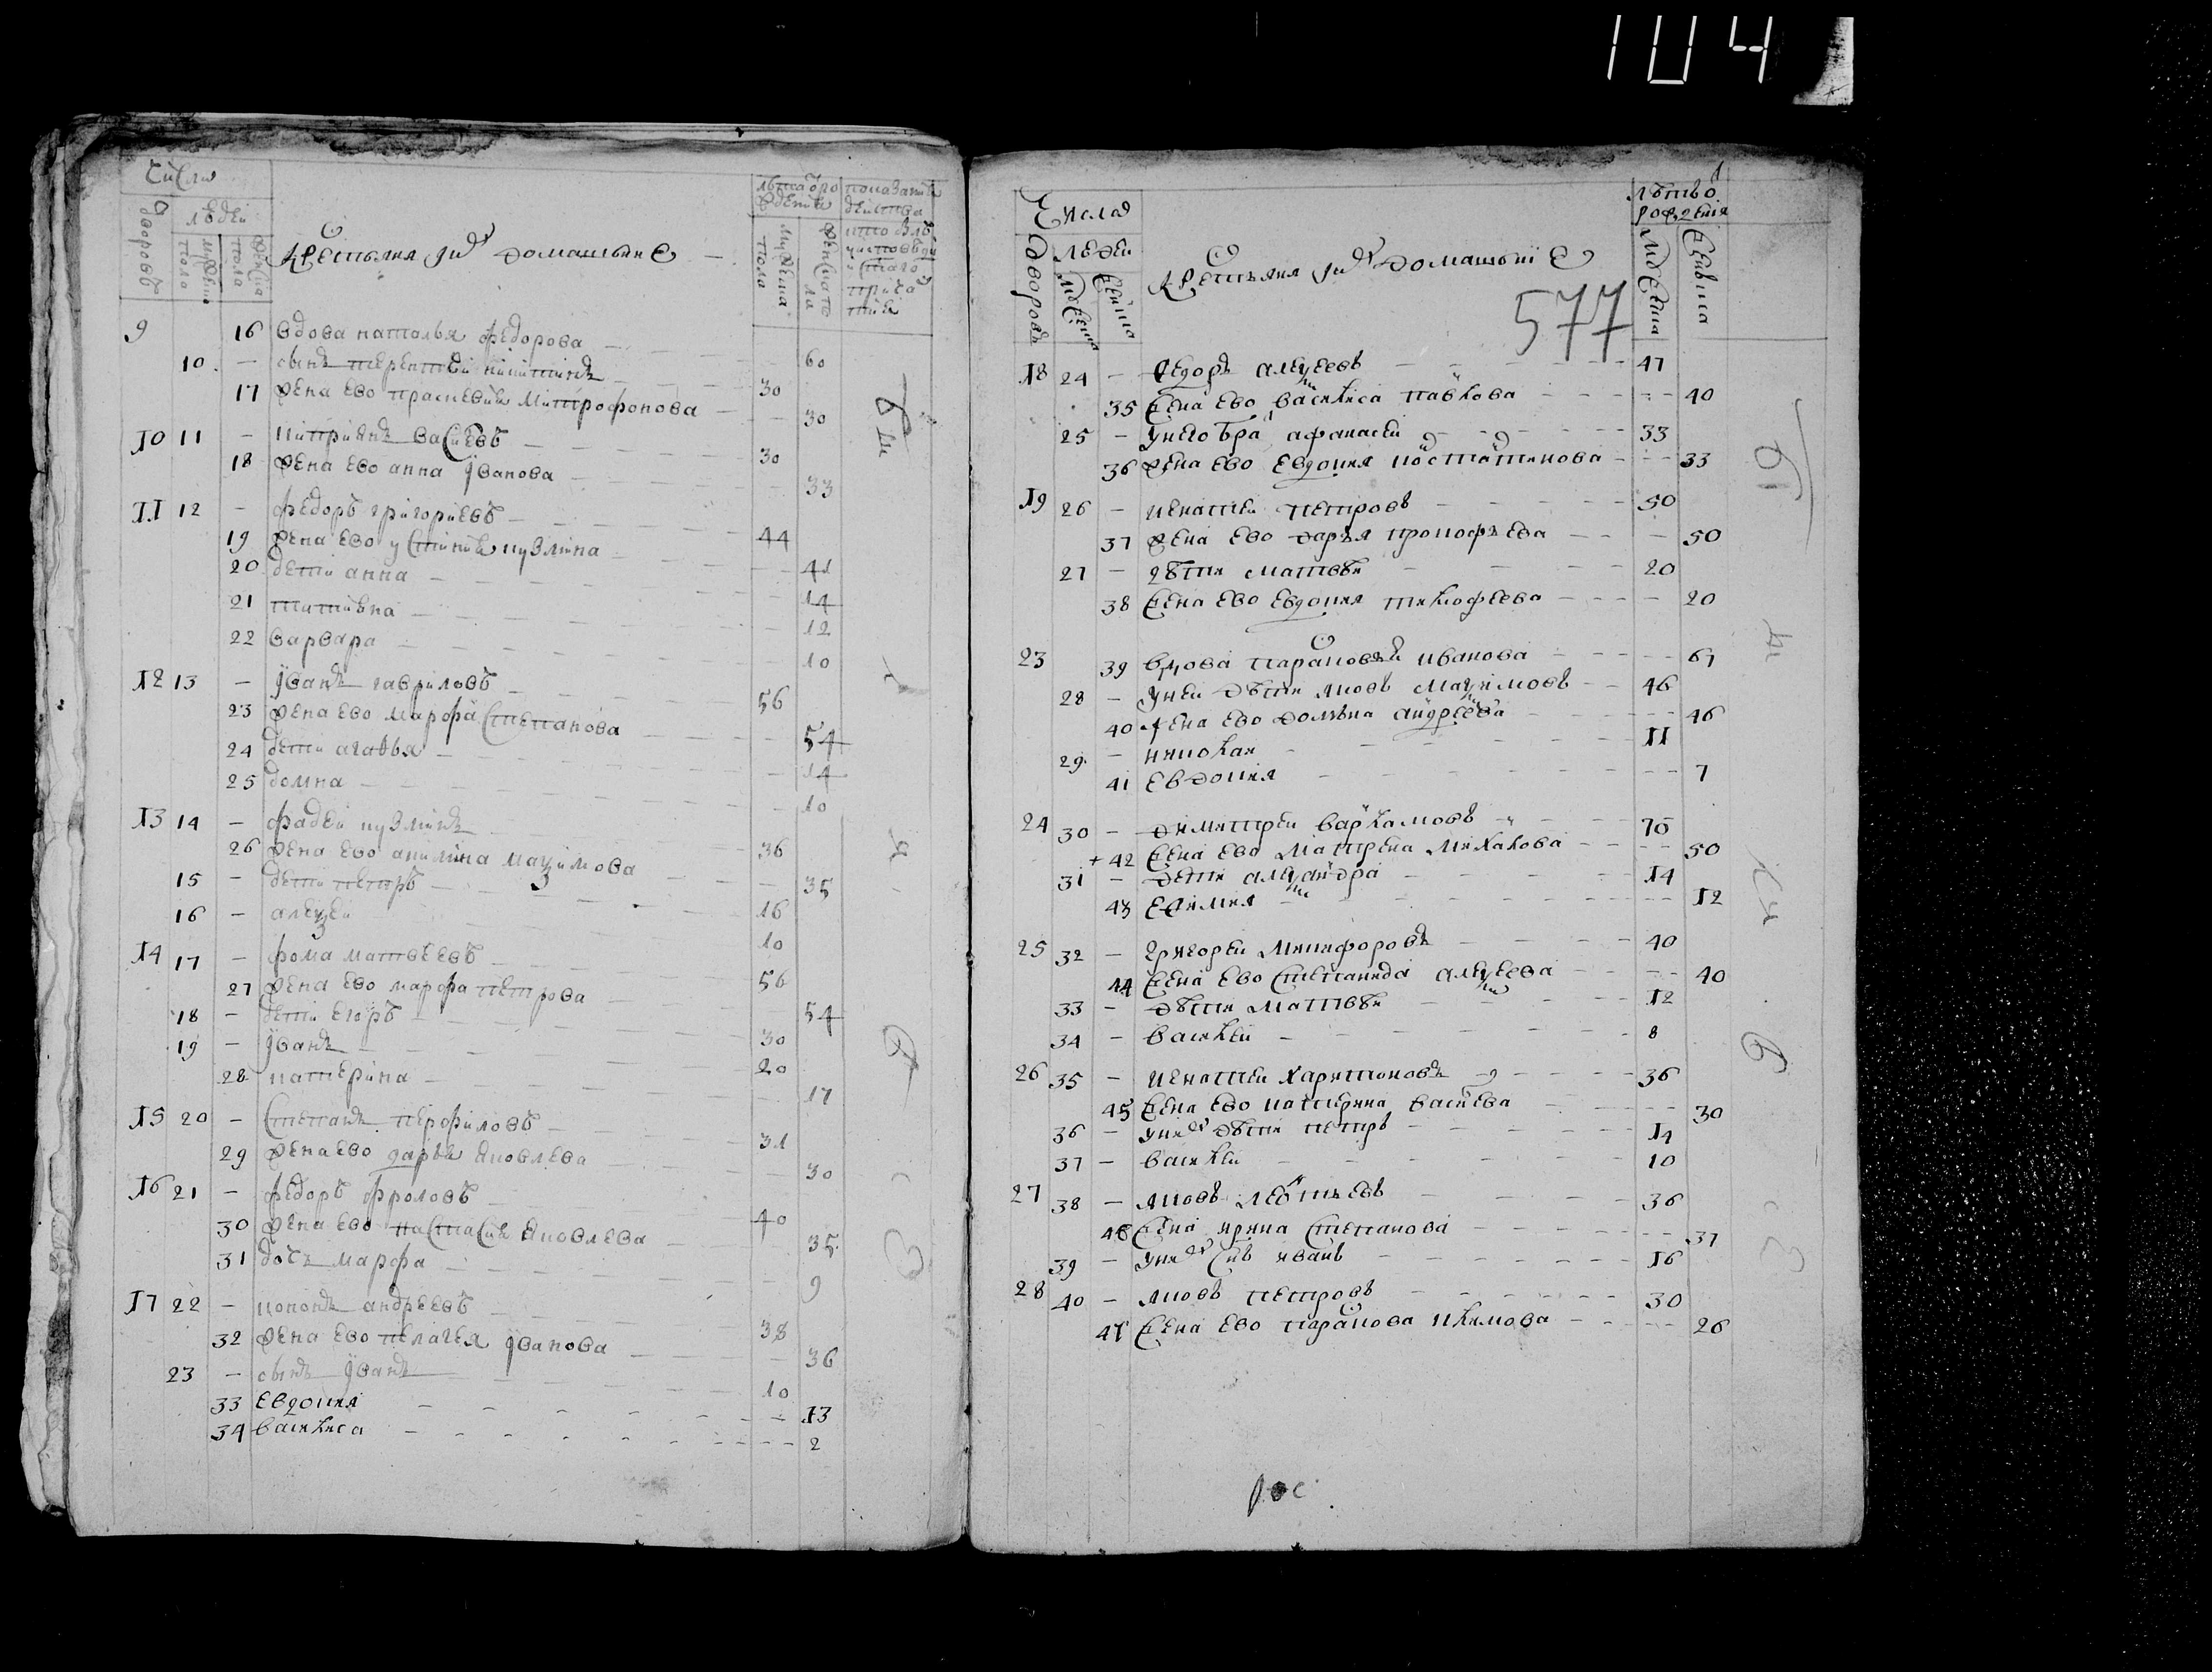 104
Числа
дворовъ
людей
мужеска пола
женска пола
Крестьяня и ихъ домашние
лета от рождения
мужеска пола
женска пола
показание действа
кто былъ у исповеди и святаго причастия
9 16 вдова наталья федорова 60
10 – сынъ терентей никитинъ 30
17 жена ево прасковия митрофонова 30
10 11 – киприянъ васиевъ 30
18 жена ево анна иванова 33
11 12 – федоръ григориевъ 44
19 жена ево устиния кузмина 41
20 дети анна 14
21 татияна 12
22 варвара 10
12 13 – иванъ гавриловъ 56
23 жена ево марфа степанова 54
24 дети агафья 14
25 домна 10
13 14 – фадей кузминъ 36
26 жена ево акилина маѯимова 35
15 – дети петръ 16
16 – алеѯей 10
14 17 – фома матвеевъ 56
27 жена ево марфа петрова 54
18 – дети егоръ 30
19 – иванъ 20
28 катерина 17
15 20 – степанъ перфиловъ 31
29 жена ево дарья яковлева 30
16 21 – федоръ фроловъ 40
30 жена ево настасия яковлева 35
31 дочь марфа 9
17 22 – кононъ андреевъ 38
32 жена ево пелагея иванова 36
23 – сынъ иванъ 10
33 евдокия 13
34 василиса 2
Числа
дворовъ
людей
мужеска
женска
Крестьяня и ихъ домашние
577
лѣтъ от рождения
мужеска
женска
18 24 – федоръ алеѯеевъ 47
35 жена ево василиса павлова 40
25 – у него братъ афанасей 33
36 жена ево евдокия костантинова 33
19 26 – игнатей петровъ 50
37 жена ево дарья прокофьева 50
27 – дѣти матвѣй 20
38 жена ево евдокия тимофеева 20
23 39 вдова парасковья иванова 67
28 – у ней дѣти яковъ маѯимовъ 46
40 жена ево домна андреева 46
29 – николай 11
41 евдокия 7
24 30 – димитрей варламовъ 70
+ 42 жена ево матрена михалова 50
31 – дети алеѯандра 14
43 ефимия 12
25 32 – григорей никифоровъ 40
44 жена ево степанида алеѯеева 40
33 – дѣти матвѣй 12
34 – василей 8
26 35 – игнатей харитоновъ 36
45 жена ево катерина васиева 30
36 – у нихъ дѣти петръ 14
37 – василей 10
27 38 – яковъ леонтьевъ 36
46 жена ирина степанова 37
39 – у нихъ сынъ иванъ 16
28 40 – яковъ петровъ 30
47 жена ево параскова климова 26